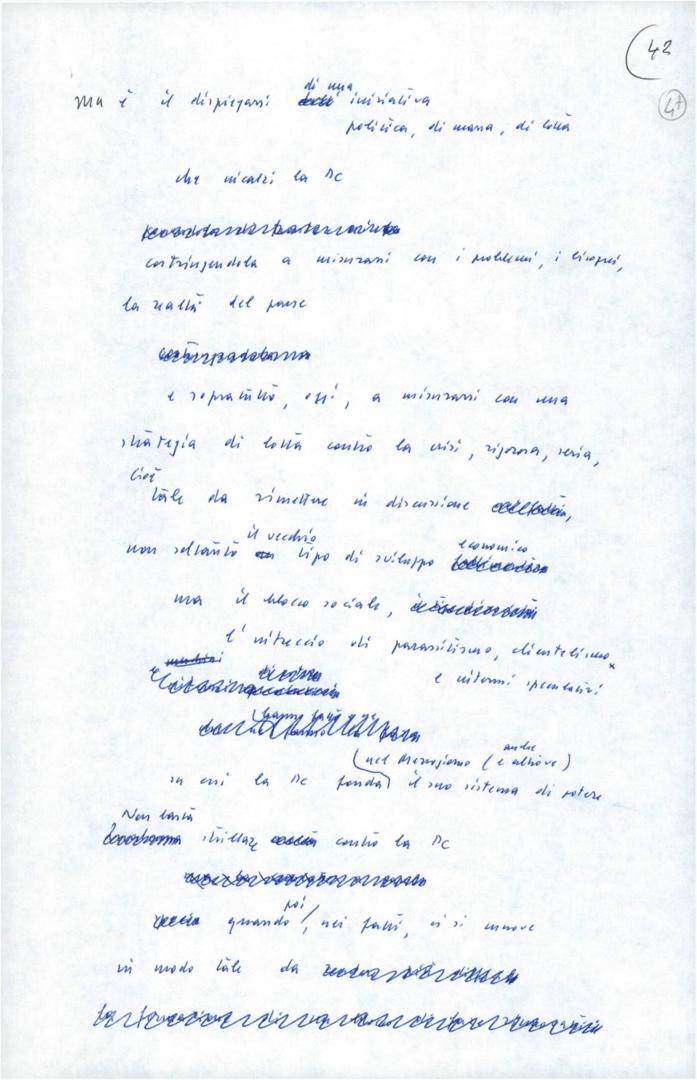 42
4+
ma è il dispiegarsi di una iniziativa
politica, di massa, di lotta
che incalzi la DC
costringendola a misurarsi con i problemi, i bisogni,
la realtà del paese
e soprattutto, oggi, a misurarsi con una
strategia di lotta contro la crisi, rigorosa, seria,
cioè
tale da rimettere in discussione
non soltanto il vecchio tipo di sviluppo economico
ma il blocco sociale,
l'intreccio di parassitismo, clientelismo
e interessi speculativi
(nel Mezzogiorno (e anche altrove)
su cui la DC fonda il suo sistema di potere
Non basta
strillare contro la DC
quando poi, nei fatti, ci si muove
in modo tale da